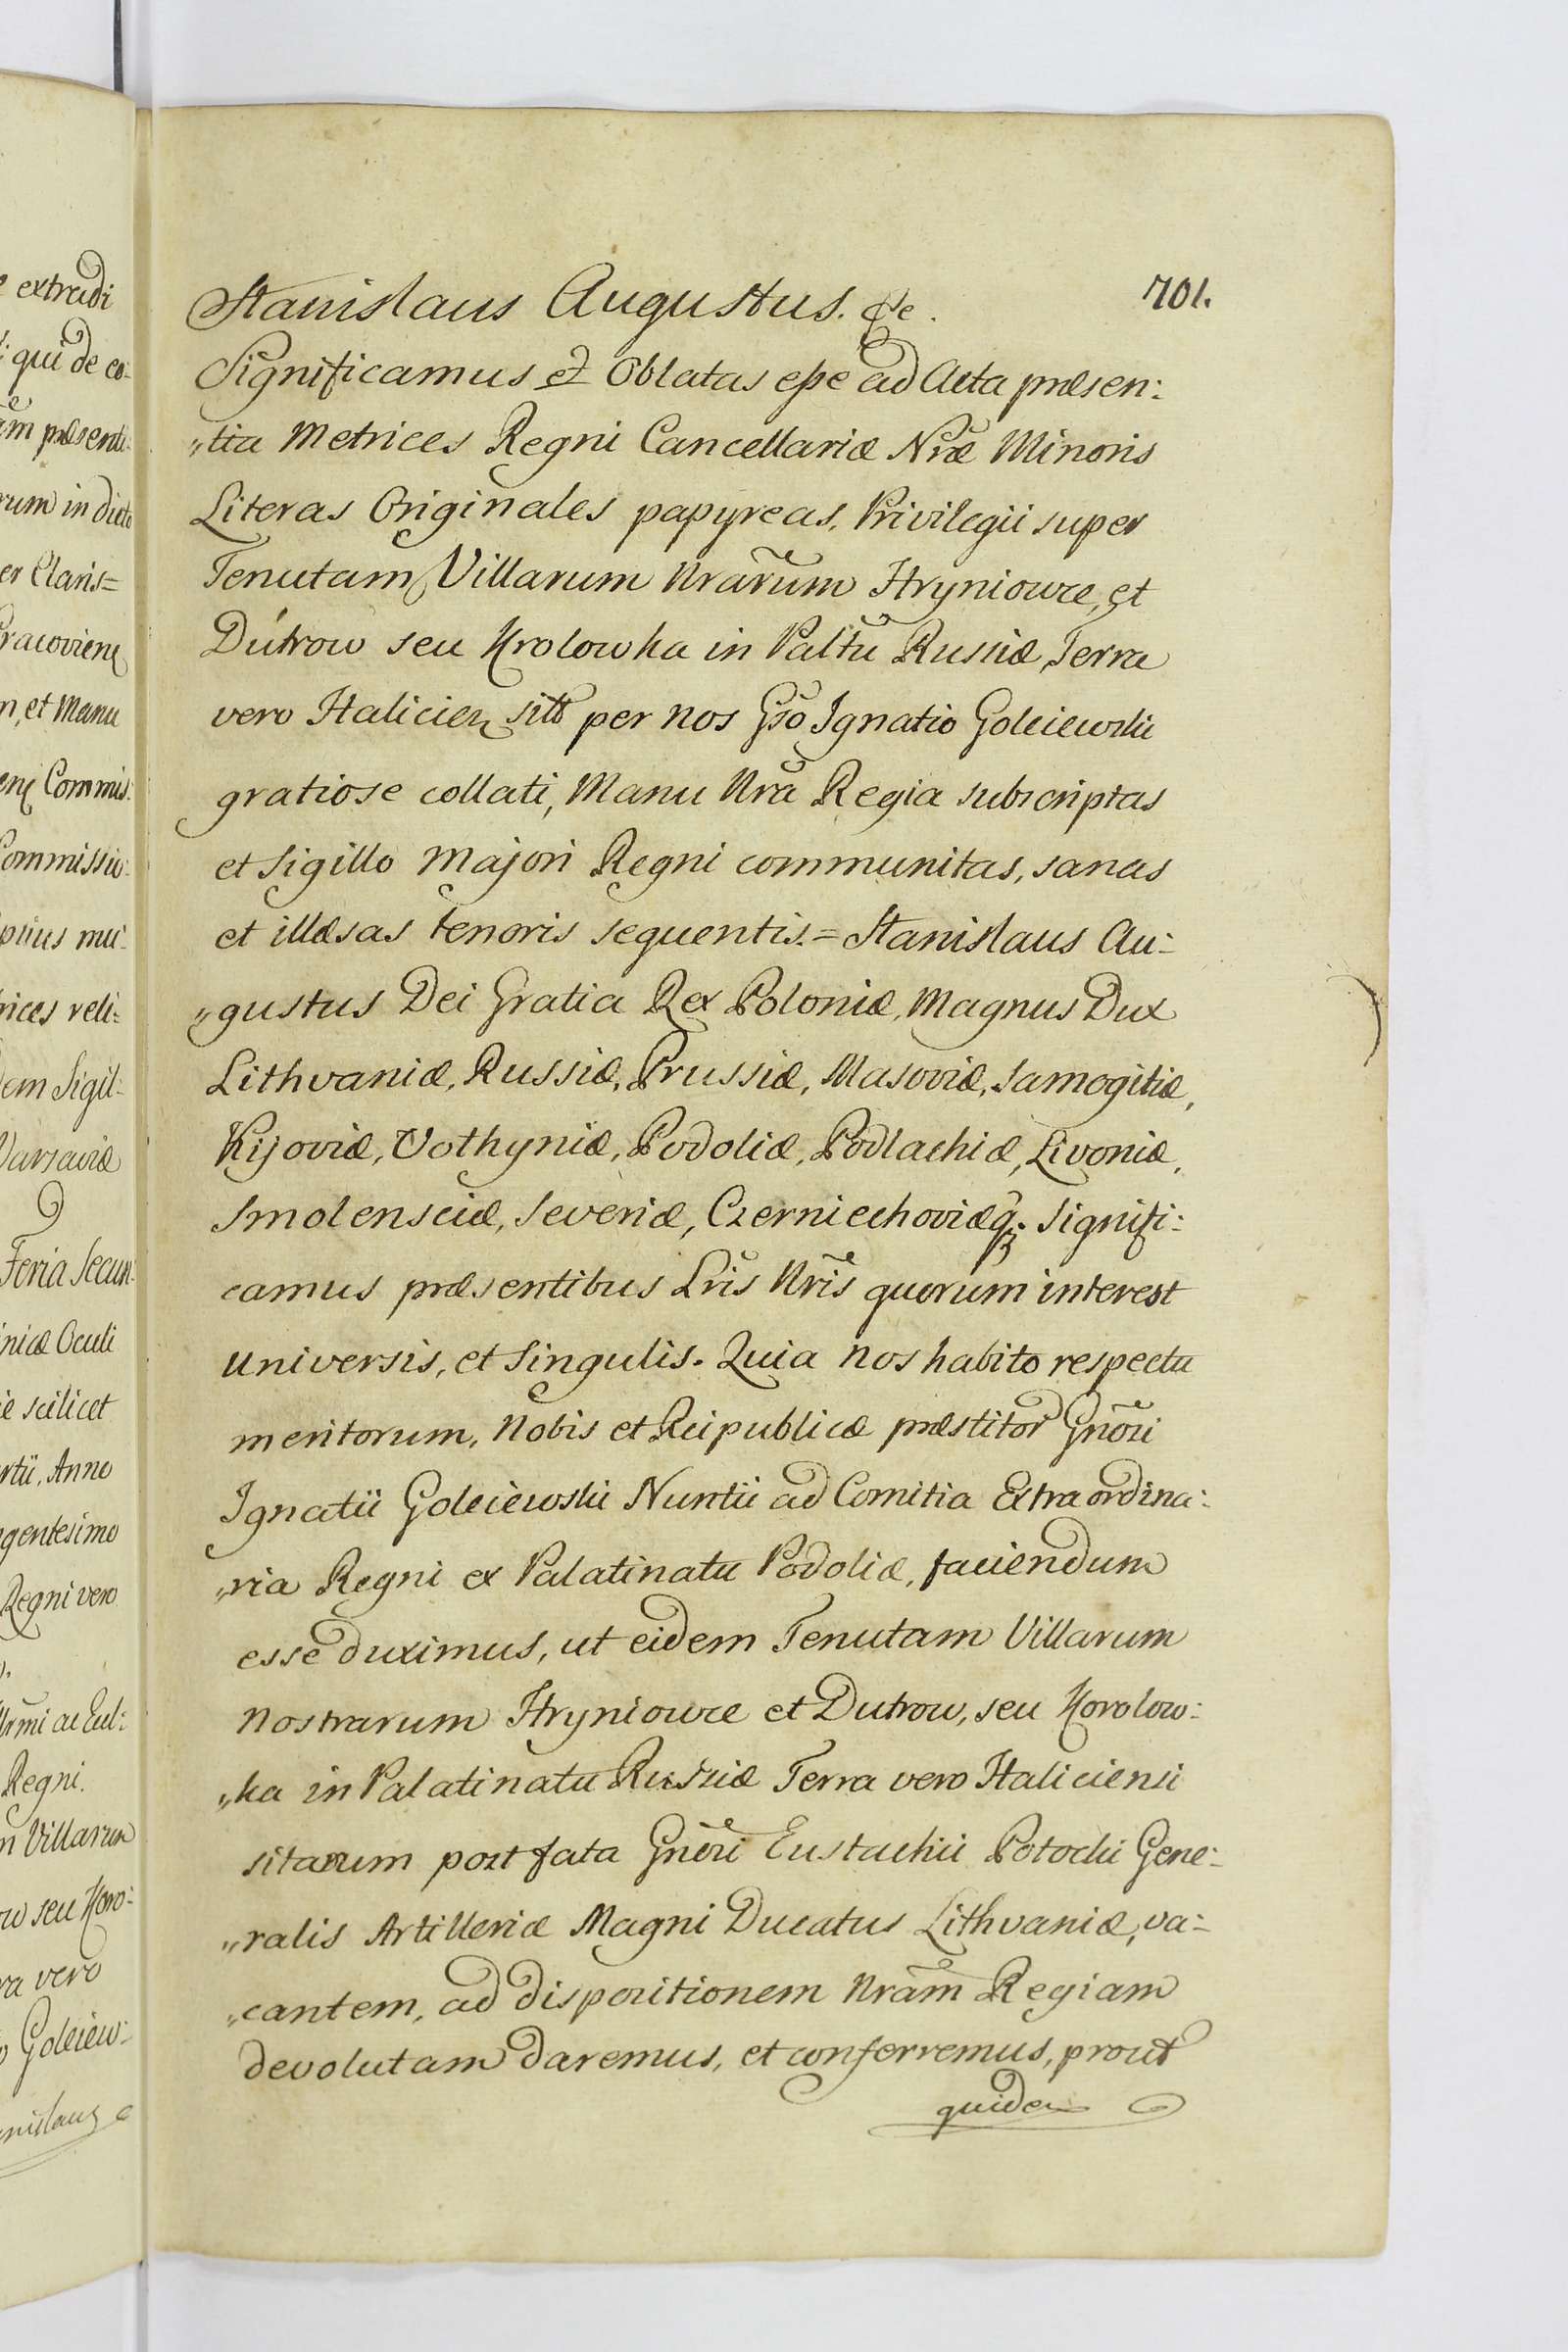 701.
Stanislaus Augustus. &c.
Significamus et Oblatas esse ad Acta præsen:
„tia Metrices Regni Cancellariæ Nræ Minoris
Literas Originales papyreas, Privilegii super
Tenutam Villarum Nrarum Hryniowce, et
Dutrow seu Krolowka in Paltu Russiæ, Terra
vero Halicien sitt per nos Gso Ignatio Goleiewski
gratiose collati, Manu Nra Regia subscriptas
et Sigillo Majori Regni communitas, sanas
et illæsas tenoris sequentis.= Stanislaus Au:
„gustus Dei Gratia Rex Poloniæ, Magnus Dux
Lithvaniæ, Russiæ, Prussiæ, Masoviæ, Samogitiæ,
Kijoviæ, Volhyniæ, Podoliæ, Podlachiæ, Livoniæ,
Smolensciæ, Severiæ, Czerniechoviæq. Signifi:
camus præsentibus Lris Nris quorum interest
universis, et Singulis. Quia nos habito respectu
meritorum, Nobis et Reipublicæ præstitor Gnosi
Ignatii Goleiewski Nuntii ad Comitia Extraordina:
„ria Regni ex Palatinatu Podoliæ, faciendum
esse duximus, ut eidem Tenutam Villarum
Nostrarum Hryniowce et Dutrow, seu Korolow:
„ka in Palatinatu Russiæ Terra vero Haliciensi
sitarum post fata Gnosi Eustachii Potocki Gene:
„ralis Artilleriæ Magni Ducatus Lithvaniæ, va:
„cantem, ad dispositionem Nram Regiam
devolutam daremus, et conferremus, prout
quidem